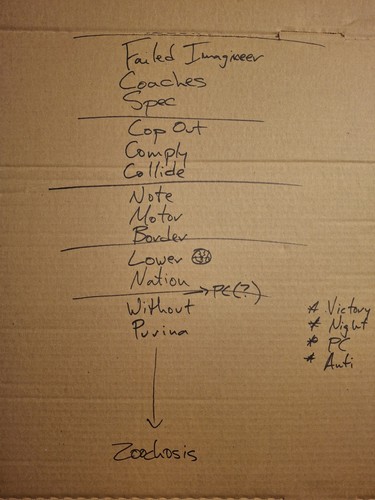 Failed Imagineer
Coaches
Spec
Cop Out
Comply
Collide
Note
Motor
Border
Lower
Nation → PC(?)
Without
Purina
* Victory
* Night
* PC
* Anti
Zoochosis